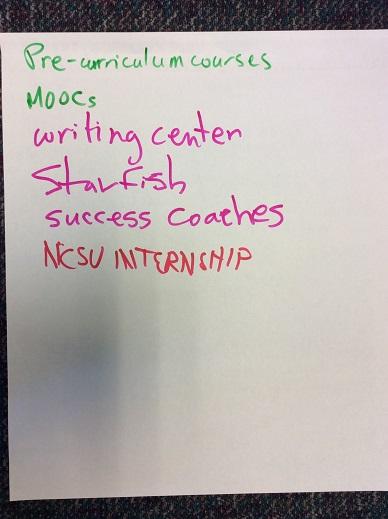 Pre-curriculum courses
MOOCs
writing center
Starfish
success coaches
NCSU INTERNSHIP